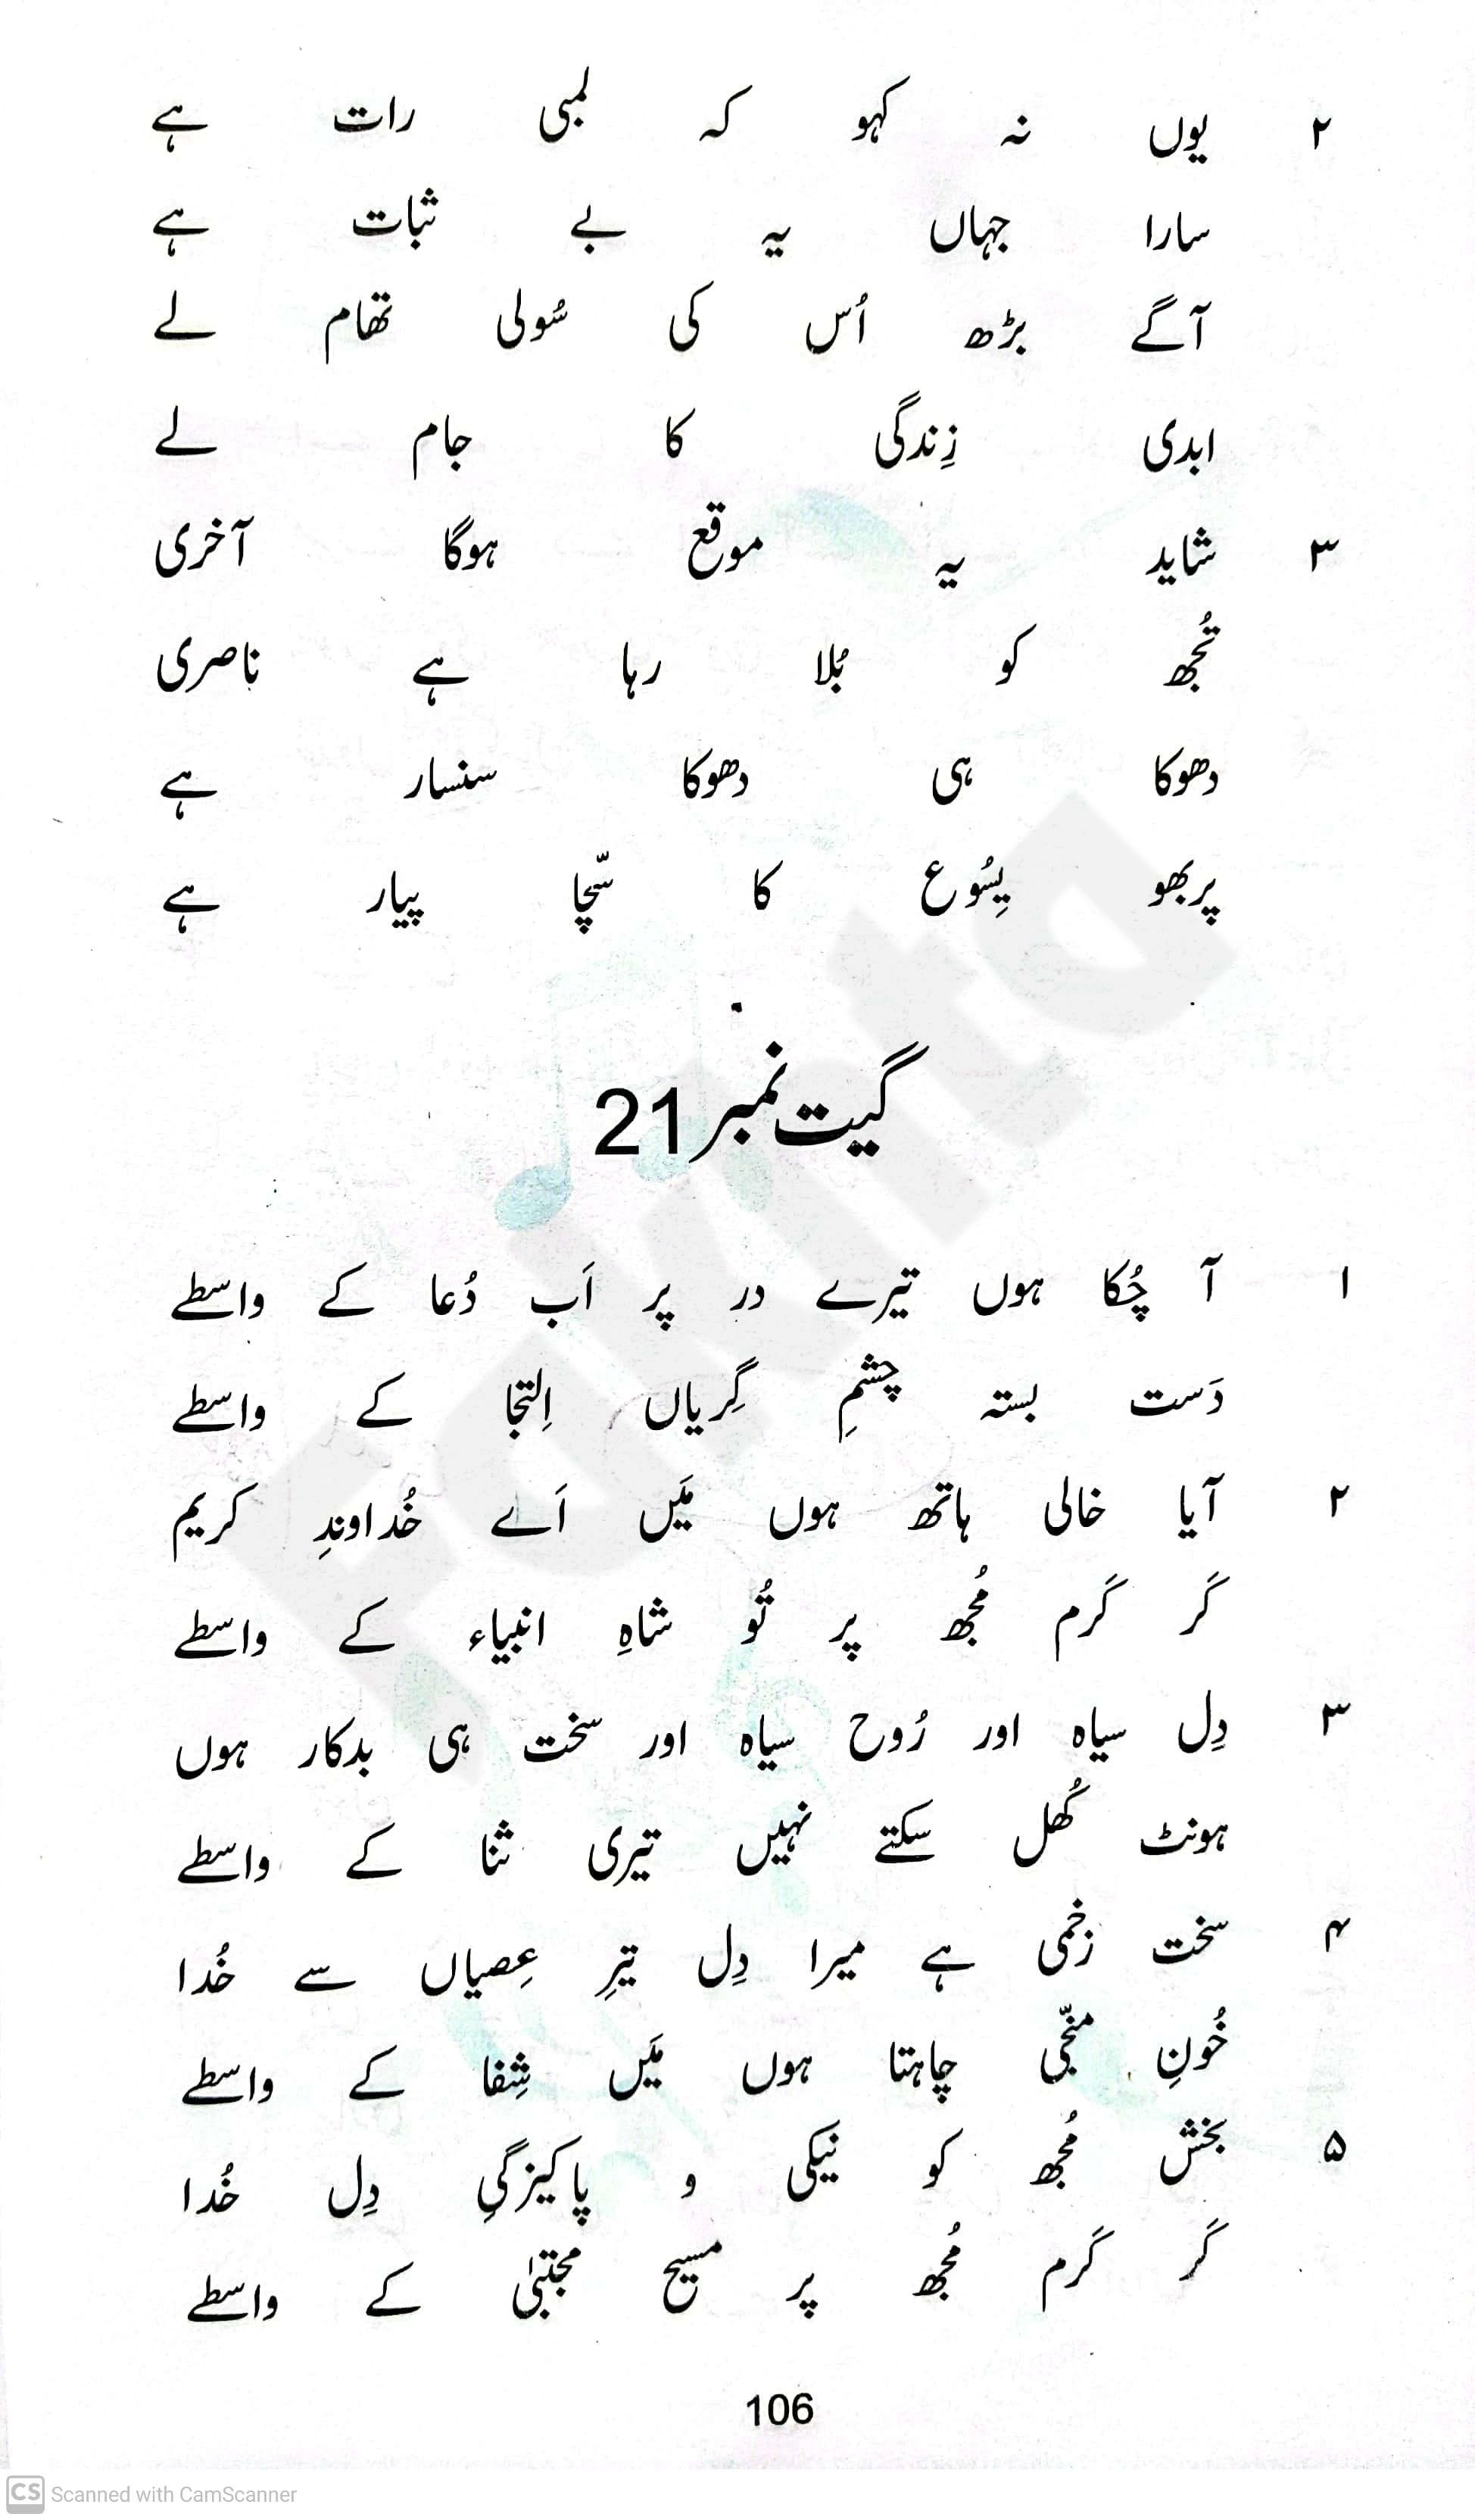 ۲ یوں نہ کہو کہ لمبی رات ہے
سارا جہاں یہ بے ثبات ہے
آگے بڑھ اُس کی سُولی تھام لے
ابدی زِندگی کا جام لے
۳ شاید یہ موقع ہوگا آخری
تُجھ کو بُلا رہا ہے ناصری
دھوکا ہی دھوکا سنسار ہے
پربھو یِسُوع کا سّچا پیار ہے
گیت نمبر 21
۱ آ چُکا ہوں تیرے در پر اَب دُعا کے واسطے
دَست بستہ چشمِ گِریاں اِلتجا کے واسطے
۲ آیا خالی ہاتھ ہوں مَیں اَے خُداوندِ کریم
کَر کَرم مُجھ پر تُو شاہِ انبیاء کے واسطے
۳ دِل سیاہ اور رُوح سیاہ اور سخت ہی بدکار ہوں
ہونٹ کُھل سکتے نہیں تیری ثنا کے واسطے
۴ سخت زخمی ہے میرا دِل تیرِ عِصیاں سے خُدا
خُونِ منجّی چاہتا ہوں مَیں شِفا کے واسطے
۵ بخش مُجھ کو نیکی و پاکیزگیِ دِل خُدا
کَر کَرم مُجھ پر مسیح مجتبیٰ کے واسطے
106
Fakhta
CS Scanned with CamScanner